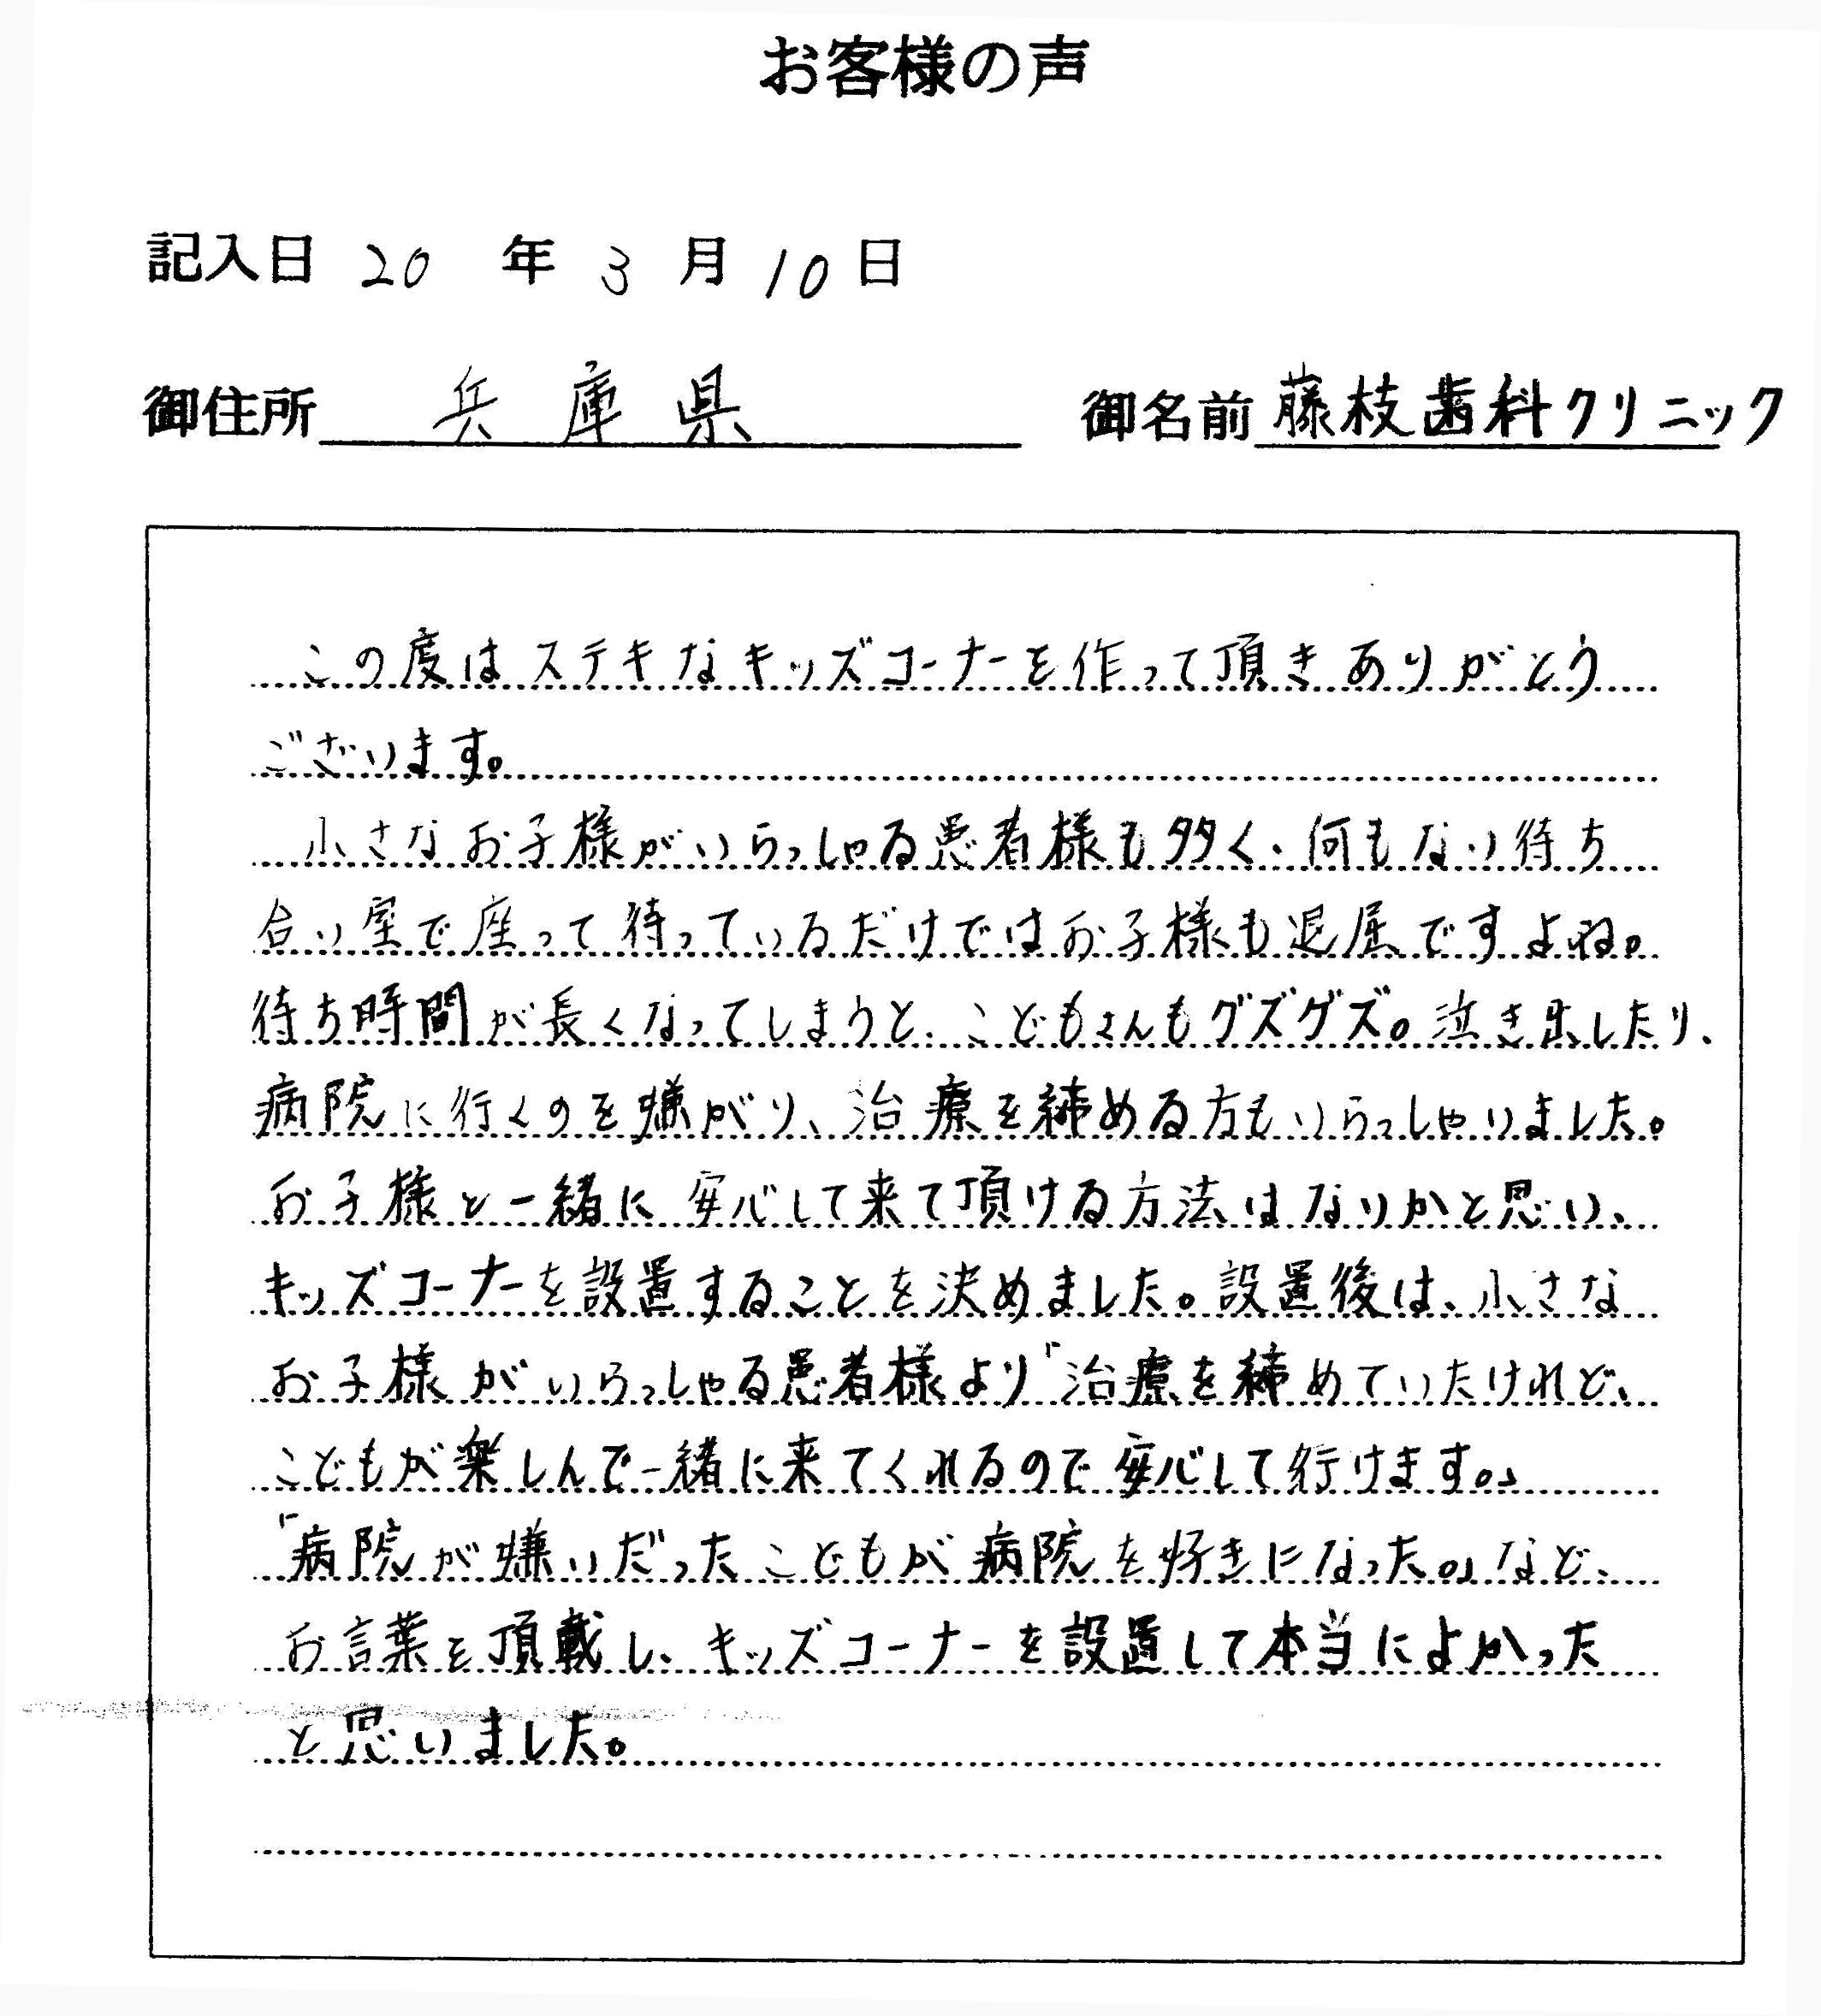 お客様の声
記入日 20 年 3 月 10 日
御住所 兵庫県 御名前 藤枝歯科クリニック
この度はステキなキッズコーナーを作って頂きありがとう
ございます。
小さなお子様がいらっしゃる患者様も多く、何もない待ち
合い室で座って待っているだけではお子様も退屈ですよね。
待ち時間が長くなってしまうと、こどもさんもグズグズ。泣き出したり、
病院に行くのを嫌がり、治療を締める方もいらっしゃりました。
お子様と一緒に安心して来て頂ける方法はないかと思い、
キッズコーナーを設置することを決めました。設置後は、小さな
お子様がいらっしゃる患者様より「治療を締めていたけれど、
こどもが楽しんで一緒に来てくれるので安心して行けます。」
「病院が嫌いだったこどもが病院を好きになった。」など、
お言葉を頂戴し、キッズコーナーを設置して本当によかった
と思いました。